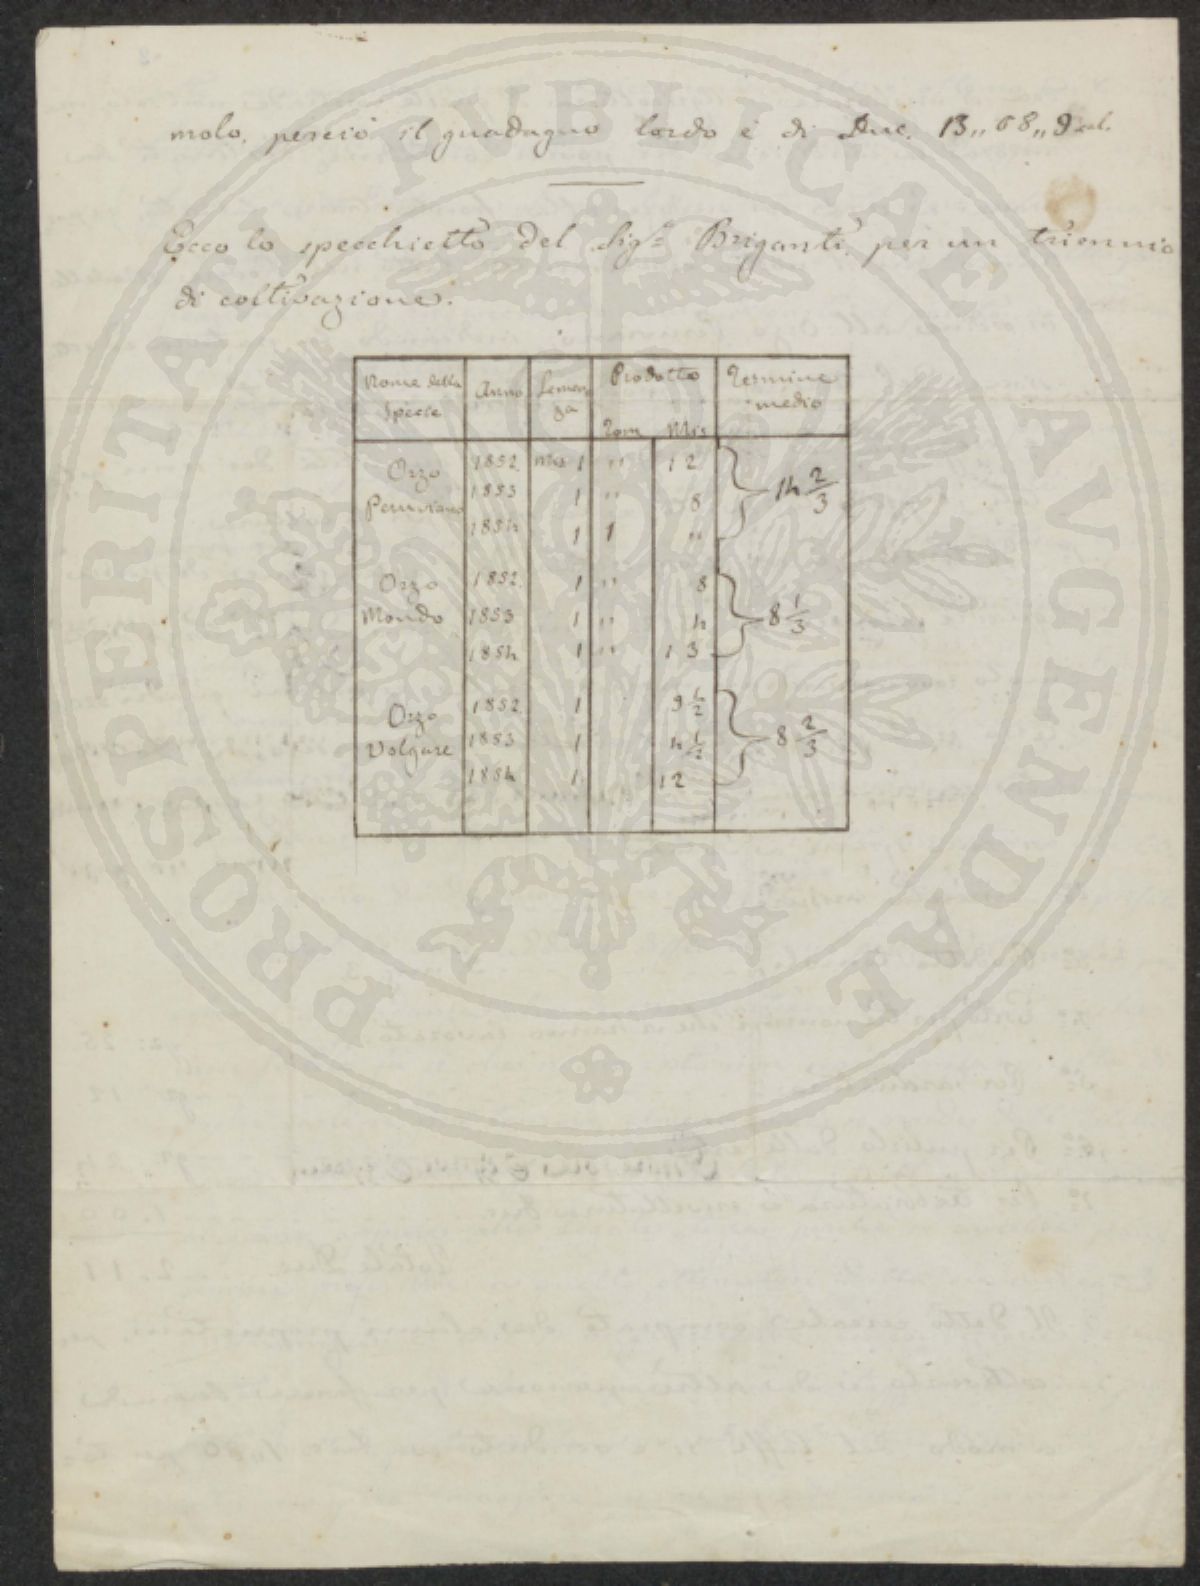 molo, perciò il guadagno lordo è di Duc. 13,,68,,9 cal.
Ecco lo specchietto del Sigr Briganti, per un triennio
di coltivazione.
Nome della Specie | Anno | Semenza | Prodotto Tom Mis | Termine medio
Orzo Peruviano | 1852 | mis 1 | ,, | 12 | 14 2/3
1853 | 1 | ,, | 8
1854 | 1 | 1 | ,,
Orzo Mondo | 1852 | 1 | ,, | 8 | 8 1/3
1853 | 1 | ,, | 4
1854 | 1 | ,, | 13
Orzo Volgare | 1852 | 1 | 9 1/2 | 8 2/3
1853 | 1 | 4 1/2
1854 | 1 | 12
PROSPERITATI PVBLICAE AVGENDAE